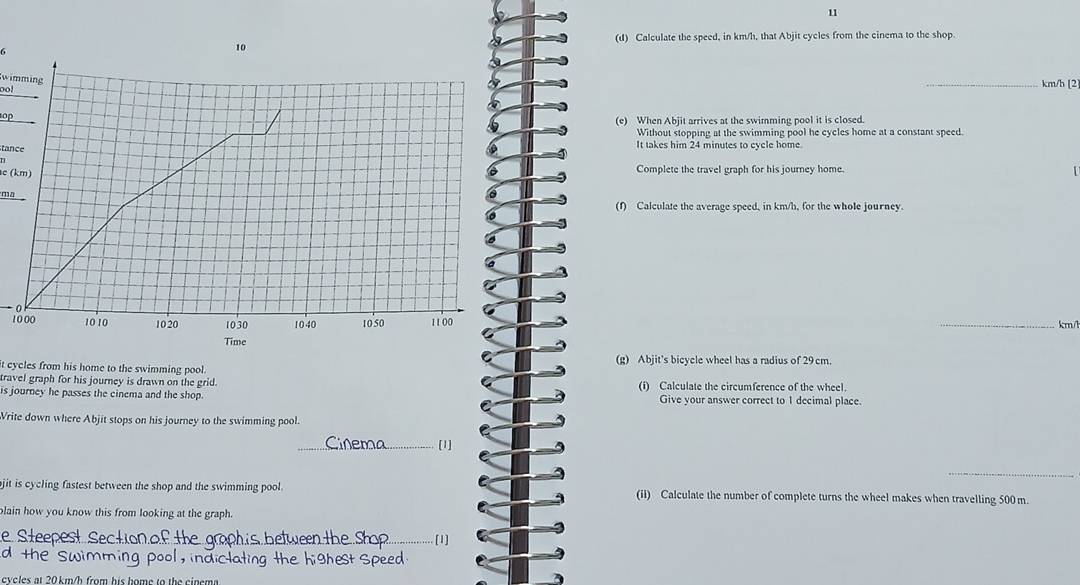 10
6
wimming
ool
op
tance
n
e (km)
ma
0
10 00 10 10 10 20 10 30 10 40 10 50 11 00
Time
it cycles from his home to the swimming pool.
travel graph for his journey is drawn on the grid.
is journey he passes the cinema and the shop.
Write down where Abjit stops on his journey to the swimming pool.
Cinema [1]
jit is cycling fastest between the shop and the swimming pool.
plain how you know this from looking at the graph.
e Steepest section of the graph is between the shop [1]
d the swimming pool, indictating the highest speed.
cycles at 20 km/h from his home to the cinema
11
(d) Calculate the speed, in km/h, that Abjit cycles from the cinema to the shop.
km/h [2]
(e) When Abjit arrives at the swimming pool it is closed.
Without stopping at the swimming pool he cycles home at a constant speed.
It takes him 24 minutes to cycle home.
Complete the travel graph for his journey home.
[
(f) Calculate the average speed, in km/h, for the whole journey.
km/h
(g) Abjit's bicycle wheel has a radius of 29 cm.
(i) Calculate the circumference of the wheel.
Give your answer correct to 1 decimal place.
(ii) Calculate the number of complete turns the wheel makes when travelling 500 m.